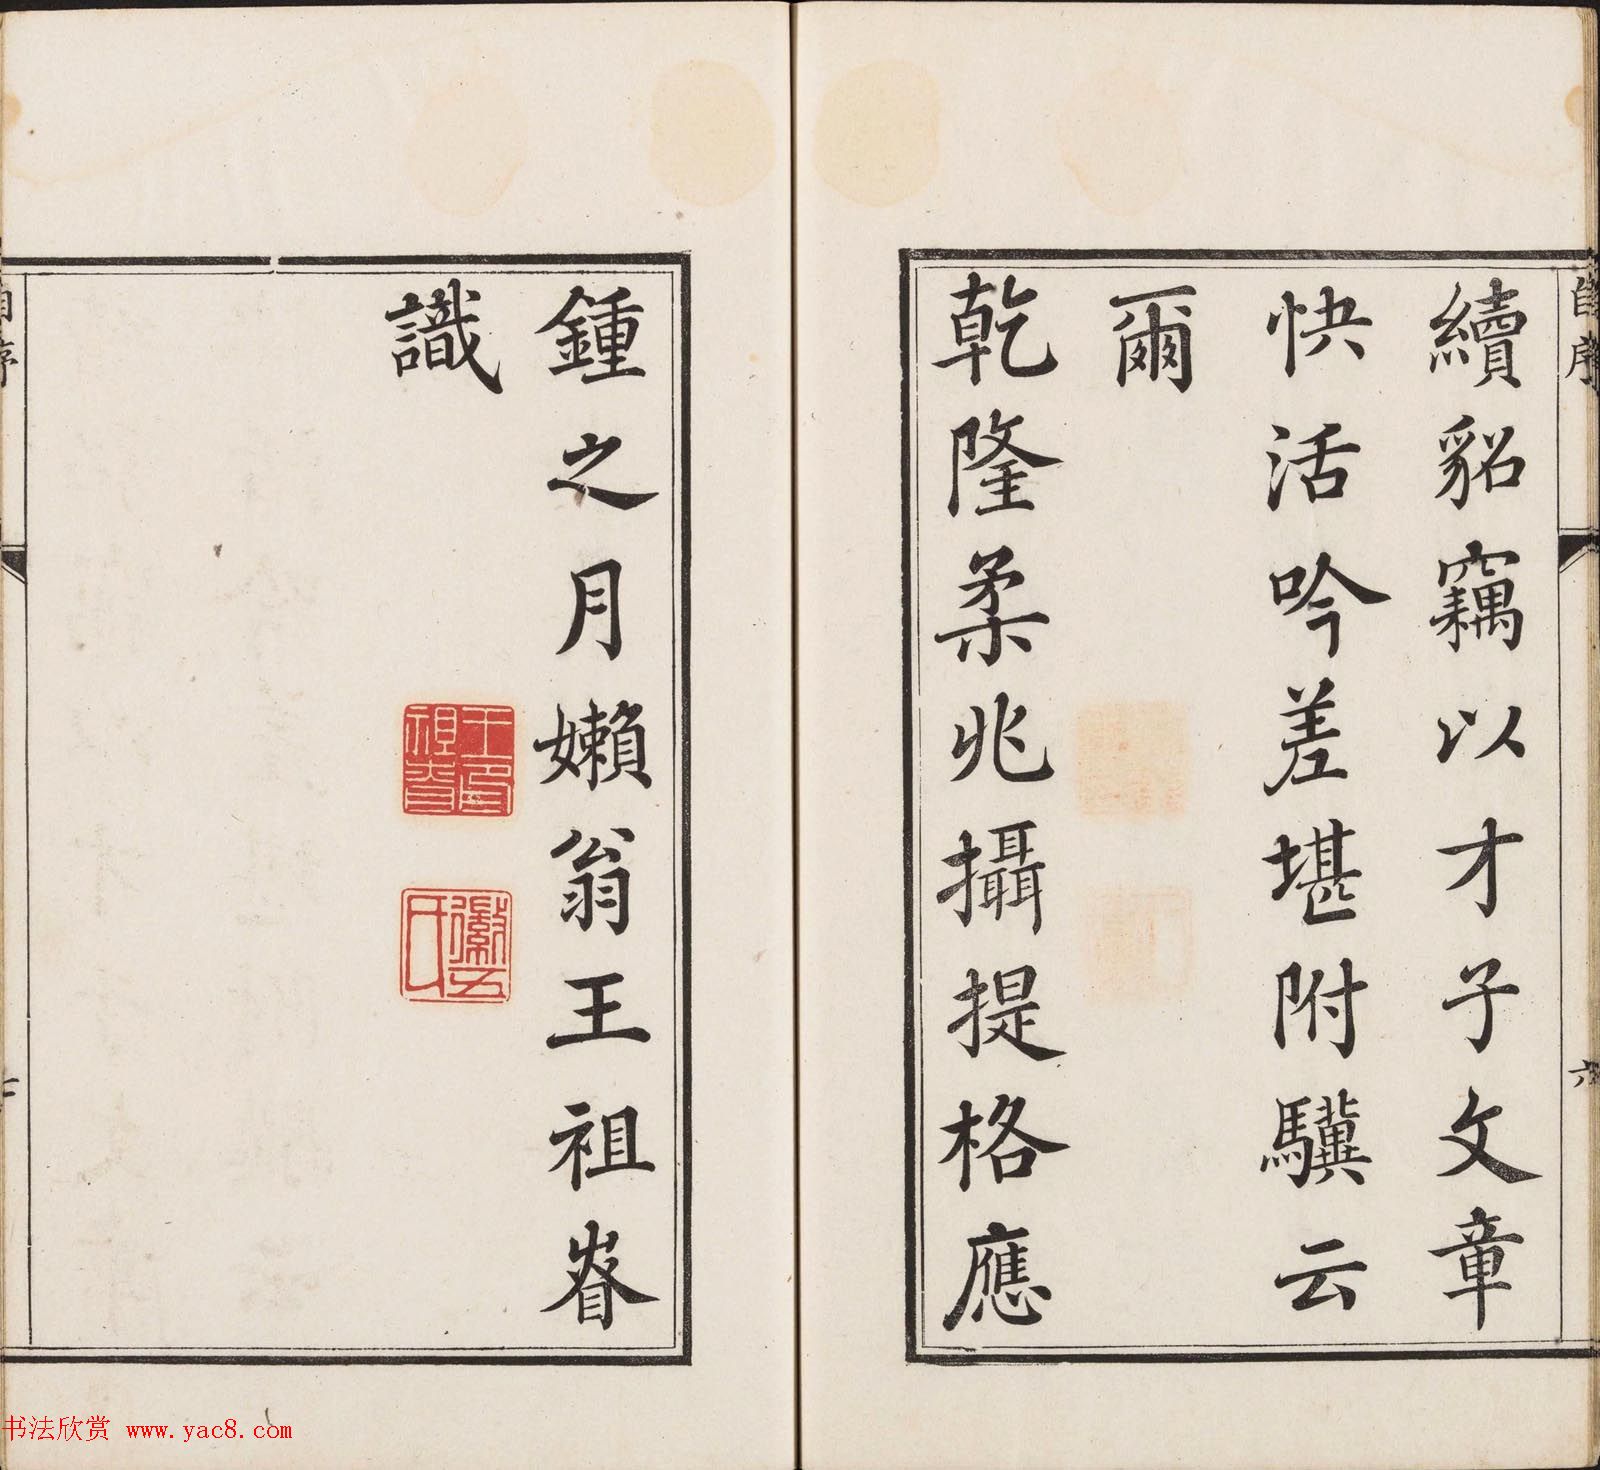 自序
續貂竊以才子文章
快活吟差堪附驥云
爾
乾隆柔兆攝提格應
六
鍾之月嬾翁王祖眘
識
王印祖眘
徽五氏
自序
七
书法欣赏 www.yac8.com